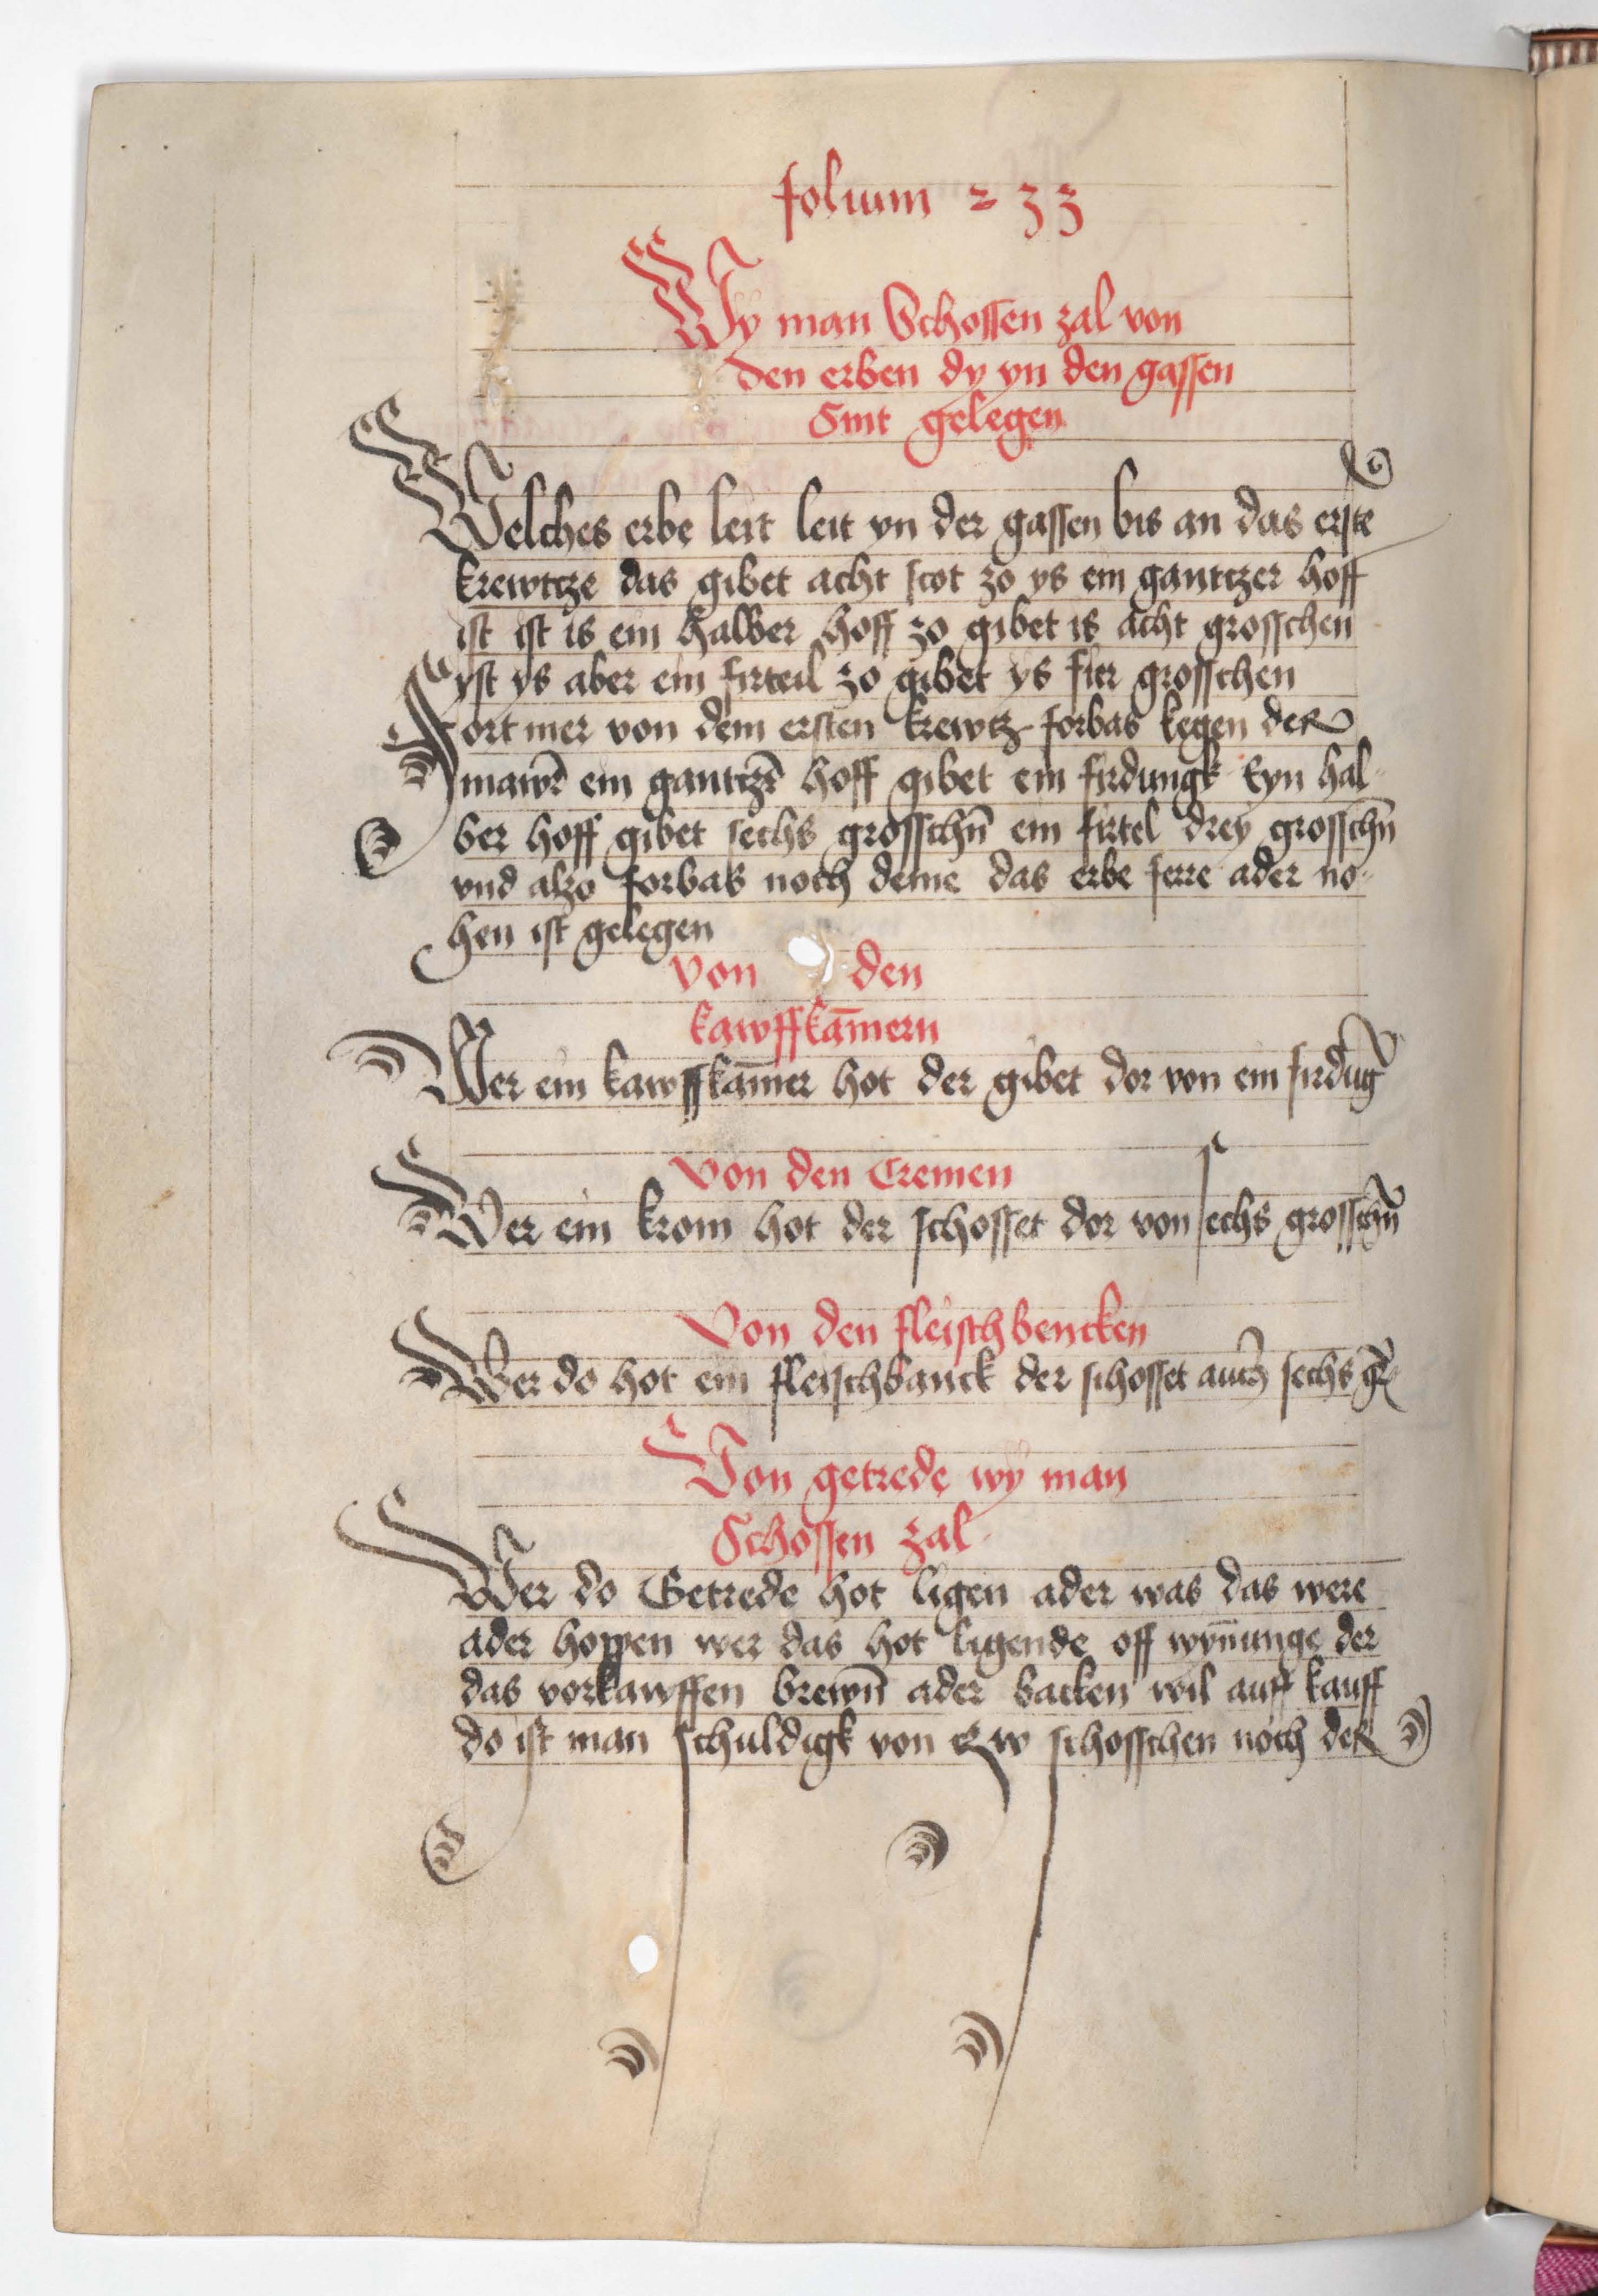 folium 233
Wy man Schossen zal von
den erben dy yn den gassen
Sint gelegen
Welches erbe leit leit yn der gassen bis an das erste
krewtcze das gibet acht scot zo ys ein gantczer hoff
ist ist is ein halber hoff zo gibet is acht grosschen
yst ys aber ein firteil zo gibet ys fier grosschen
Fort mer von dem ersten krewtz forbas kegen der
mawr̄ ein gantczr̄ hoff gibet ein firdungk Eyn hal
ber hoff gibet sechs grosschn̄ ein firtel drey grosschn̄
vnd alzo forbas noch deme das erbe ferre ader no
hen ist gelegen
Von den
kawffkam̄ern
Wer ein kawffkam̄er hot der gibet dor von ein firdūg
Von den Cremen
Wer ein krom hot der schosset dor von sechs grosschn̄
Von den fleischbencken
Wer do hot ein fleischbanck der schosset auch sechs gr̄
Von getrede wy man
Schossen zal
Wer do Getrede hot ligen ader was das were
ader hoppen wer das hot ligende off wyn̄unge der
das vorkawffen brewn̄ ader backen wil auff kauff
do ist man schuldigk von czw schosschen noch der